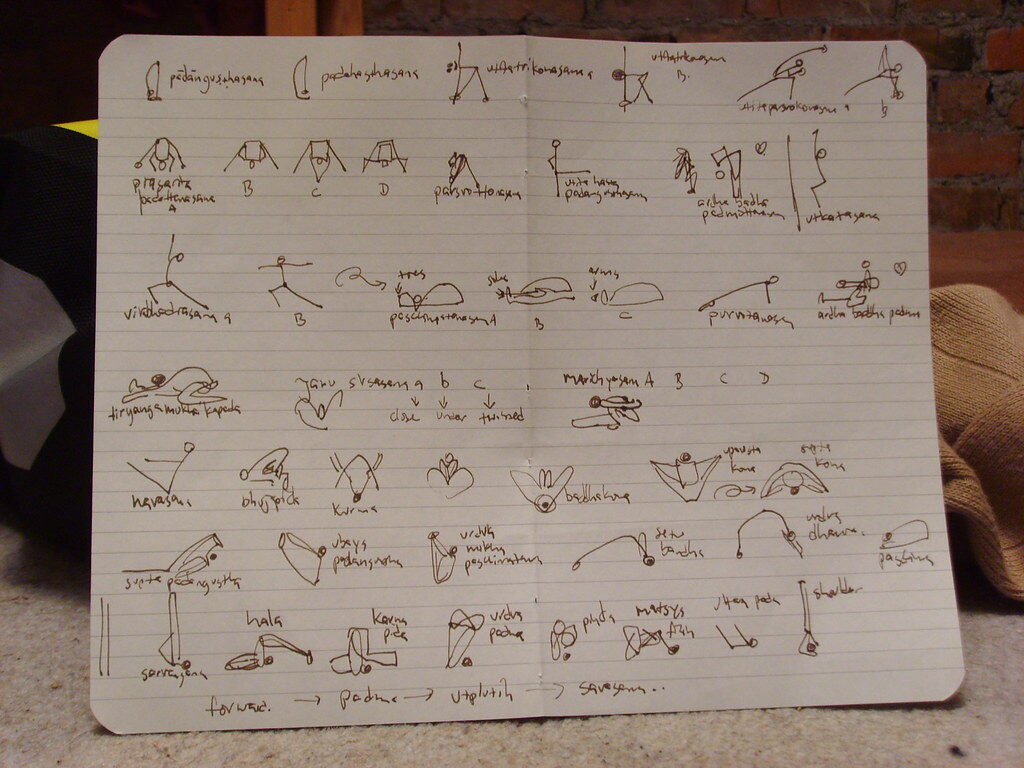 pādāngusthasana padahasthasana utfatrikonasana a utfatrikonasana B.
utiteparsvokonasana a B
prasarita padottanasana A B C D parsvottonasana utite hasta padangusthasana ardha badha padmottanasana utkatasana
virabhadrasana a B toes paschimotanasana A sides B arms C purvotanasana ardha baddha padma
tiryanga mukha kapada Janu sirsasana a b c marichyasana A B C D
close under twisted
navasana bhujpida kurma baddhakona upavista kona supta kona
supta padangustha ubaya padangustha urdva mukha paschimotana setu bandha urdva dhanura. paschima
sarvangasana hala karna pida urdva padma pinda matsya fish uttana pada shoulder
forward. → padma → utplutih → savasana..